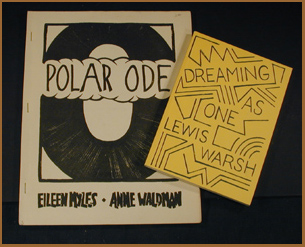 POLAR ODE
EILEEN MYLES • ANNE WALDMAN
DREAMING
AS
ONE
LEWIS
WARSH